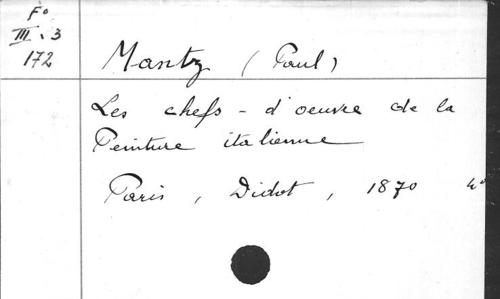 F°
III.3
172
Mantz (Paul)
Les chefs-d'oeuvre de la
Peinture italienne
Paris, Didot, 1870 4°